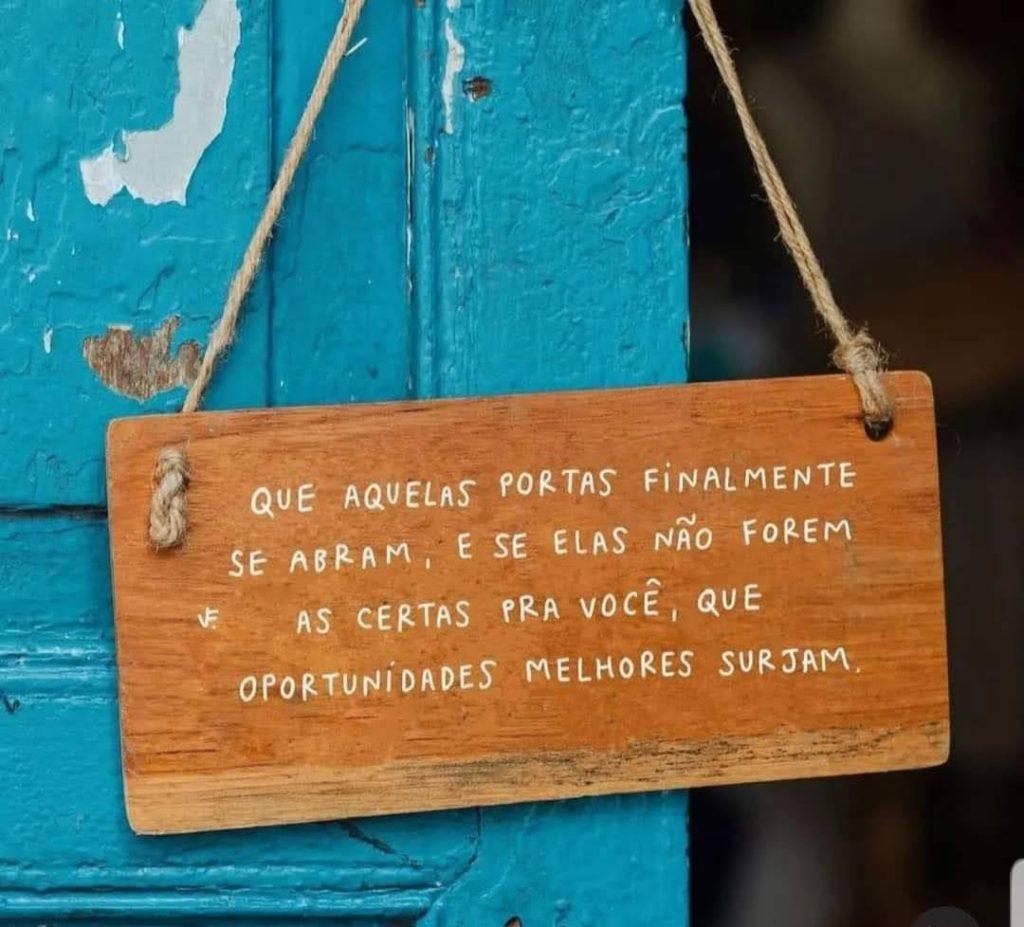 QUE AQUELAS PORTAS FINALMENTE
SE ABRAM, E SE ELAS NÃO FOREM
AS CERTAS PRA VOCÊ, QUE
OPORTUNIDADES MELHORES SURJAM.